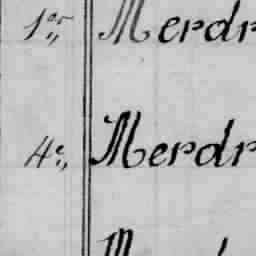 1er Merdr
4e Merdr